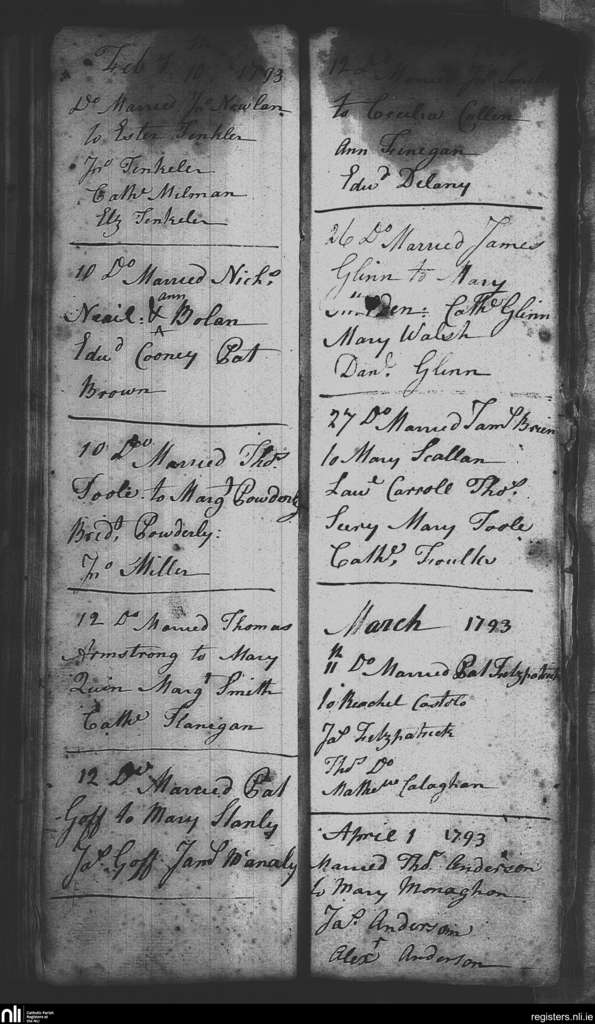 Feb 10th 1793
Do Married Jno Nowlan
to Ester Tenkler
Jno Tenkeler
Cathe Milman
Elz Tenkeler
10 Do Married Nichs
Neail: & ann Bolan
Edwd Cooney Pat
Brown
10 Do Married Thos
Toole to Margt Powderly
Bridt Powderly:
Jno Miller
12 Do Married Thomas
Armstrong to Mary
Quin Margt Smith
Cathe Flanigan
12 Do Married Pat
Goff to Mary Stanly
Jas Goff Jams McAnaly
12 Do Married Jas
to Cecelia Cullen
Ann Finegan
Edwd Delany
26 Do Married James
Glinn to Mary
Cathe Glinn
Mary Walsh
Danl Glinn
27 Do Married Jams Brien
to Mary Scallan
Lawe Carroll Thos
Seery Mary Toole
Cathe Foulks
March 1793
11th Do Married Pat Fitzpatrick
to Reachel Costolo
Jas Fetzpatrick
Thos Do
Mathew Calaghan
April 1 1793
Married Thos Anderson
to Mary Monaghan
Jas Anderson
Alexr Anderson
nli
Catholic Parish
Registers at
the NLI
registers.nli.ie